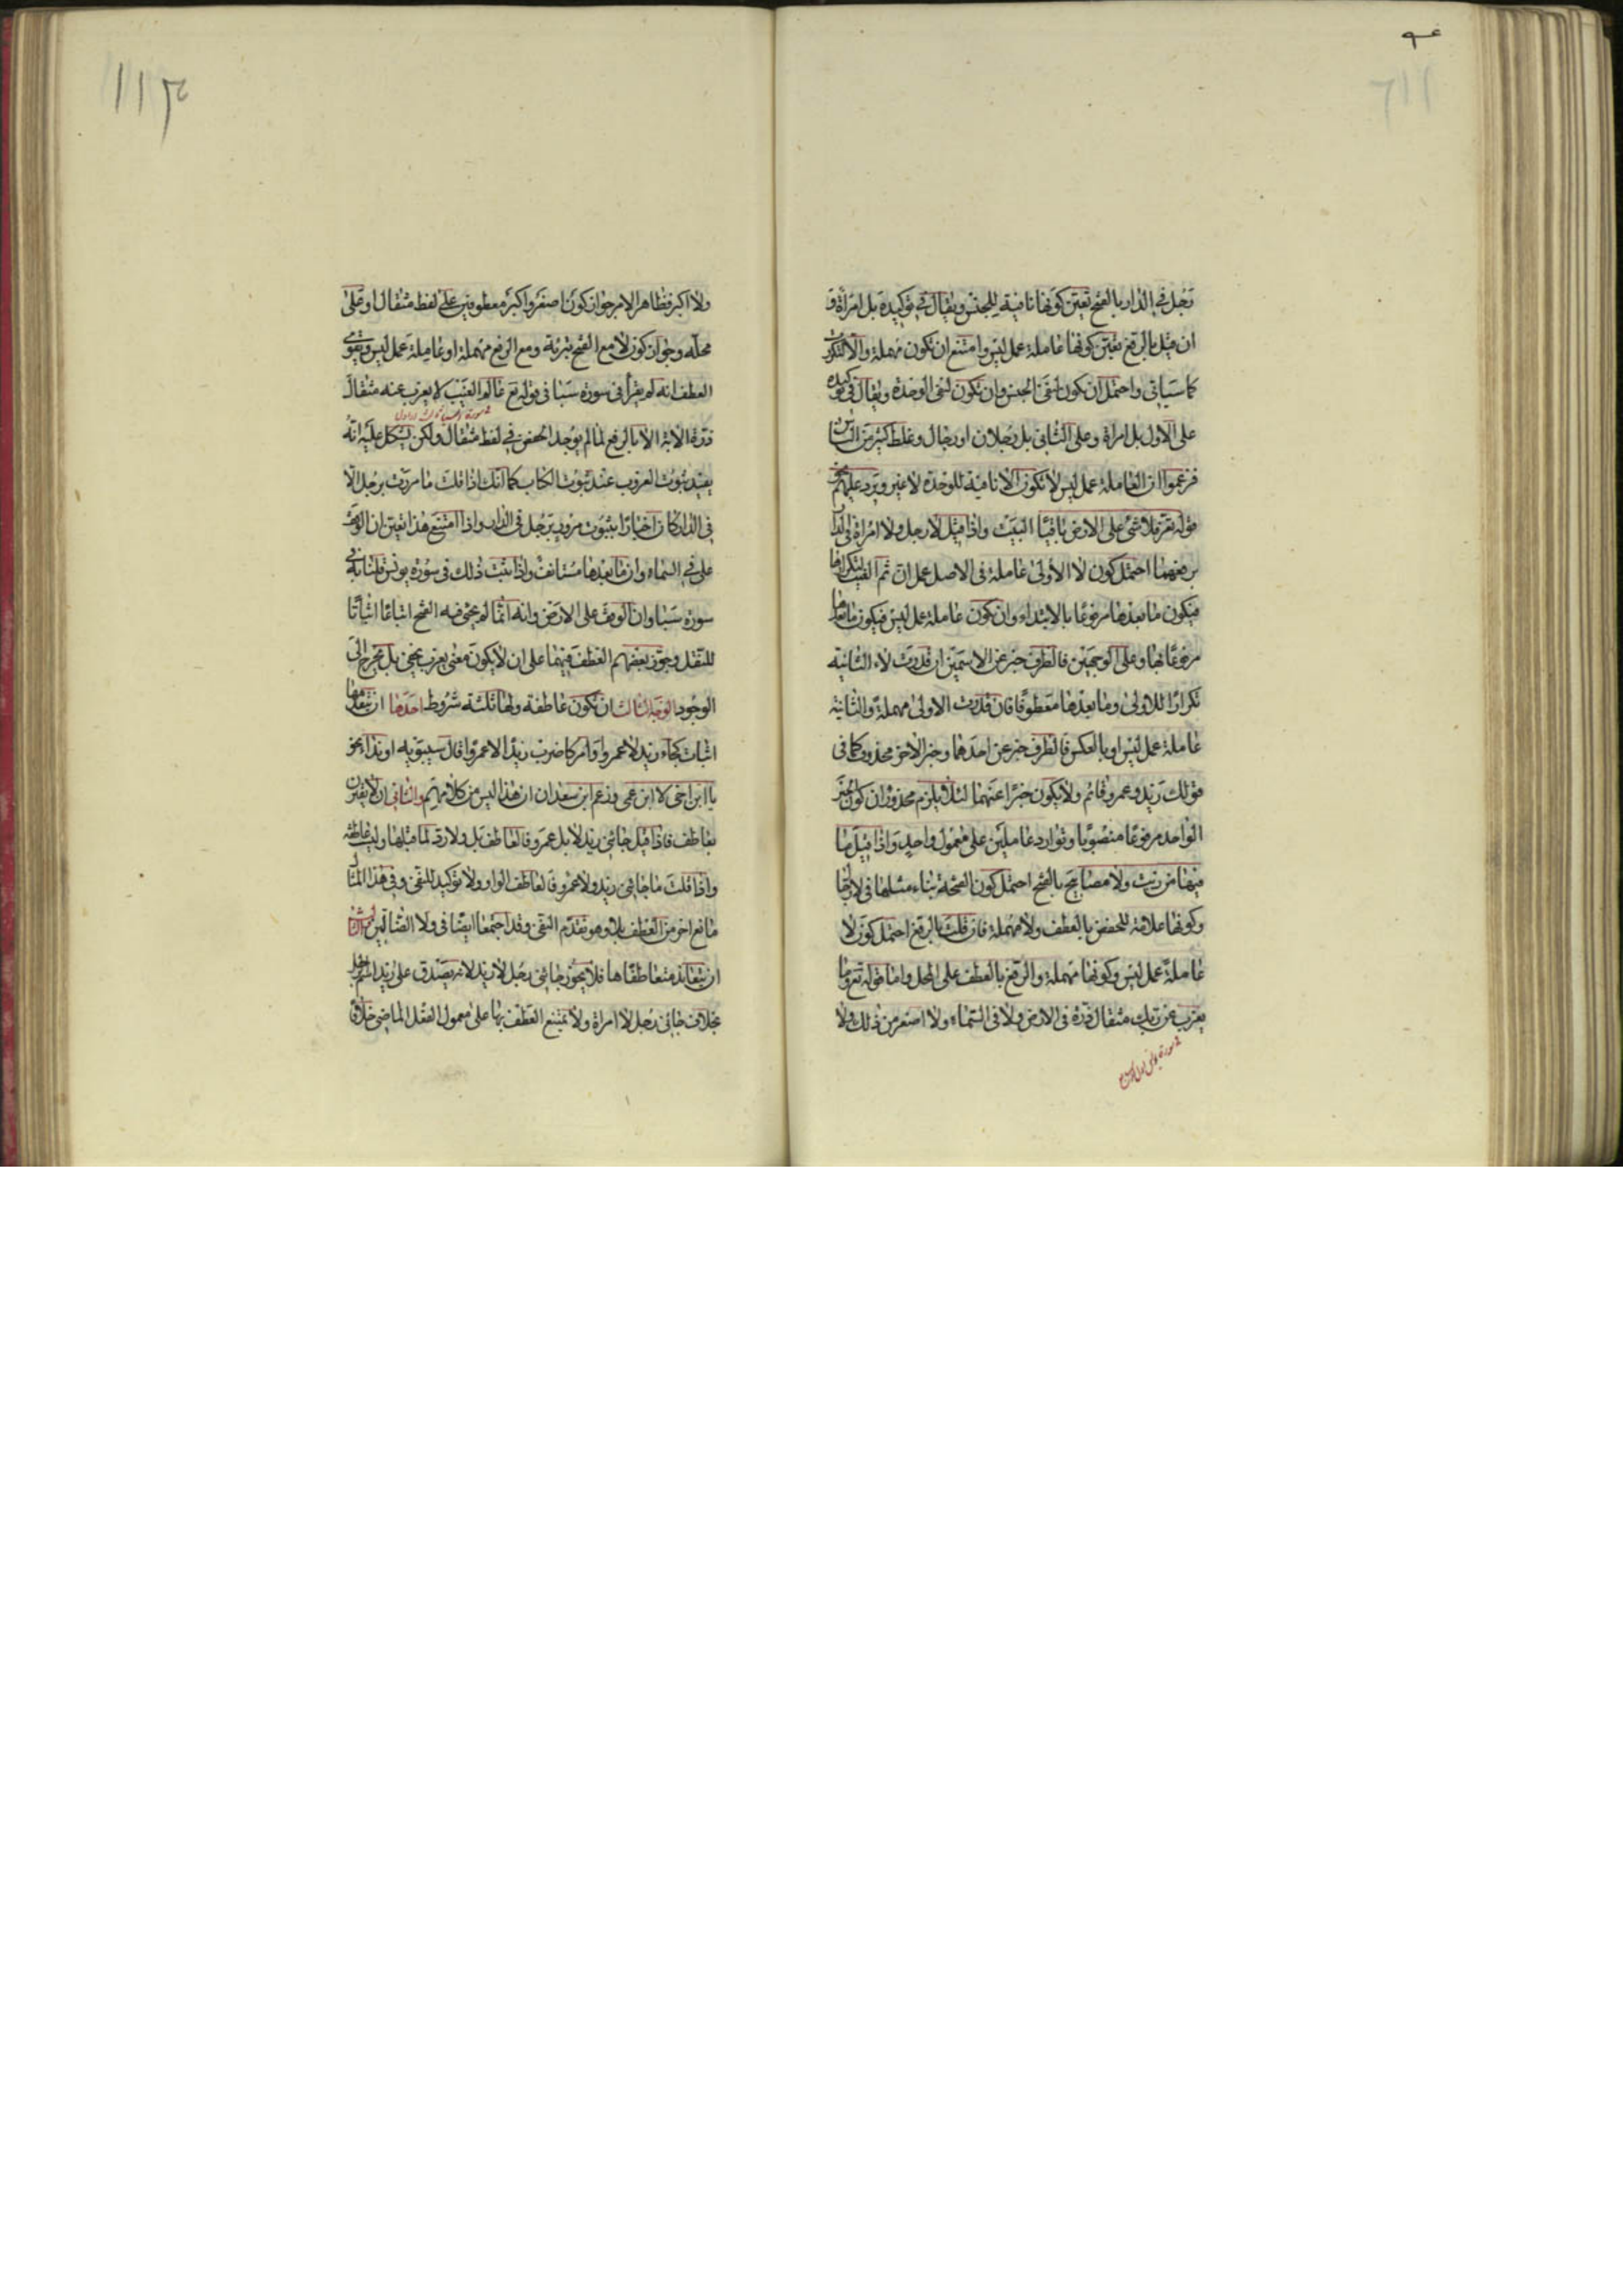 رجل في الدار بالفتح تعين كونها نافية للجنس ويقال في توكيده بل امراة و
ان قيل بالرفع تعين كونها عاملة عمل ليس وامتنع ان تكون مهملة والا لتكررت
كما سياتى واحتمل ان يكون لنفى الجنس وان تكون لنفى الوحدة ويقال في توكيده
على الاول بل امراة وعلى الثانى بل رجلان او رجال وغلط كثير من الناس
فزعموا ان العاملة عمل ليس لا تكون الا نافية للوحدة لا غير ويرد عليهم نحو
قوله تعز فلا شئ على الارض باقيا البيت واذا قيل لا رجل ولا امراة فى الدار
برفعهما احتمل كون لا الاولى عاملة فى الاصل عمل ان ثم الغيت لتكرارها
فيكون ما بعدها مرفوعا بالابتداء وان تكون عاملة عمل ليس فيكون ما بعدها
مرفوعا بها وعلى الوجهين فالظرف خبر عن الاسمين ان قدرت لا الثانية
تكرارا للاولى وما بعدها معطوفا فان قدرت الاولى مهملة والثانية
عاملة عمل ليس او بالعكس فالظرف خبر عن احدهما وخبر الاخر محذوف كما فى
قولك زيد وعمرو قائم ولا يكون خبرا عنهما لئلا يلزم محذوران كون الخبر
الواحد مرفوعا منصوبا وتوارد عاملين على معمول واحد واذا قيل ما
فيها من زيت ولا مصابيح بالفتح احتمل كون الفتحة بناء مثلها فى لا رجال
وكونها علامة للخفض بالعطف ولا مهملة فان قلت بالرفع احتمل كون لا
عاملة عمل ليس وكونها مهملة والرفع بالعطف على المحل واما قوله تع وما
يعزب عن ربك مثقال ذرة فى الارض ولا فى السماء ولا اصغر من ذلك ولا
ولا اكبر فظاهر الامر جواز كون اصغر واكبر معطوفين على لفظ مثقال او على
محله وجواز كون لا مع الفتح تبرئة ومع الرفع مهملة او عاملة عمل ليس ويقوى
العطف انه لم يقرأ فى سورة سبا فى قوله تع عالم الغيب لا يعزب عنه مثقال
ذرة الاية الا بالرفع لما لم يوجد الخفض في لفظ مثقال ولكن يشكل عليه انه
يفيد ثبوت العزوب عند ثبوت الكتاب كما انك اذا قلت ما مررت برجل الا
فى الدار كان اخبارا بثبوت مرورك برجل فى الدار واذا امتنع هذا تعين ان الوقف
على فى السماء وان ما بعدها مستانف واذا ثبت ذلك فى سورة يونس قلنا به فى
سورة سبا وان الوقف على الارض وانه انما لم يجئ فيه الفتح اتباعا
للنقل وجوز بعضهم العطف فيهما على ان لا يكون معنى يعزب يخفى بل يخرج الى
الوجود الوجه الثالث ان تكون عاطفة ولها ثلثة شروط احدها ان يتقدمها
اثبات كجاء زيد لا عمرو او امر كاضرب زيدا لا عمروا قال سيبويه او نداء نحو
يا ابن اخى لا ابن عمى وزعم ابن سعدان ان هذا ليس من كلامهم والثانى ان لا تقترن
بعاطف فاذا قيل جائنى زيد لا بل عمرو فالعاطف بل ولا رد لما قبلها وليست عاطفة
واذا قلت ما جائنى زيد ولا عمرو فالعاطف الواو ولا توكيد للنفى وفى هذا المثال
مانع اخر من العطف بلا وهو تقدم النفى وقد اجتمعا ايضا فى ولا الضالين والثالث
ان يتعاند متعاطفاها فلا يجوز جائنى رجل لا زيد لانه يصدق على زيد اسم الرجل
بخلاف جائنى رجل لا امراة ولا يمتنع العطف بها على معمول الفعل الماضى خلافا